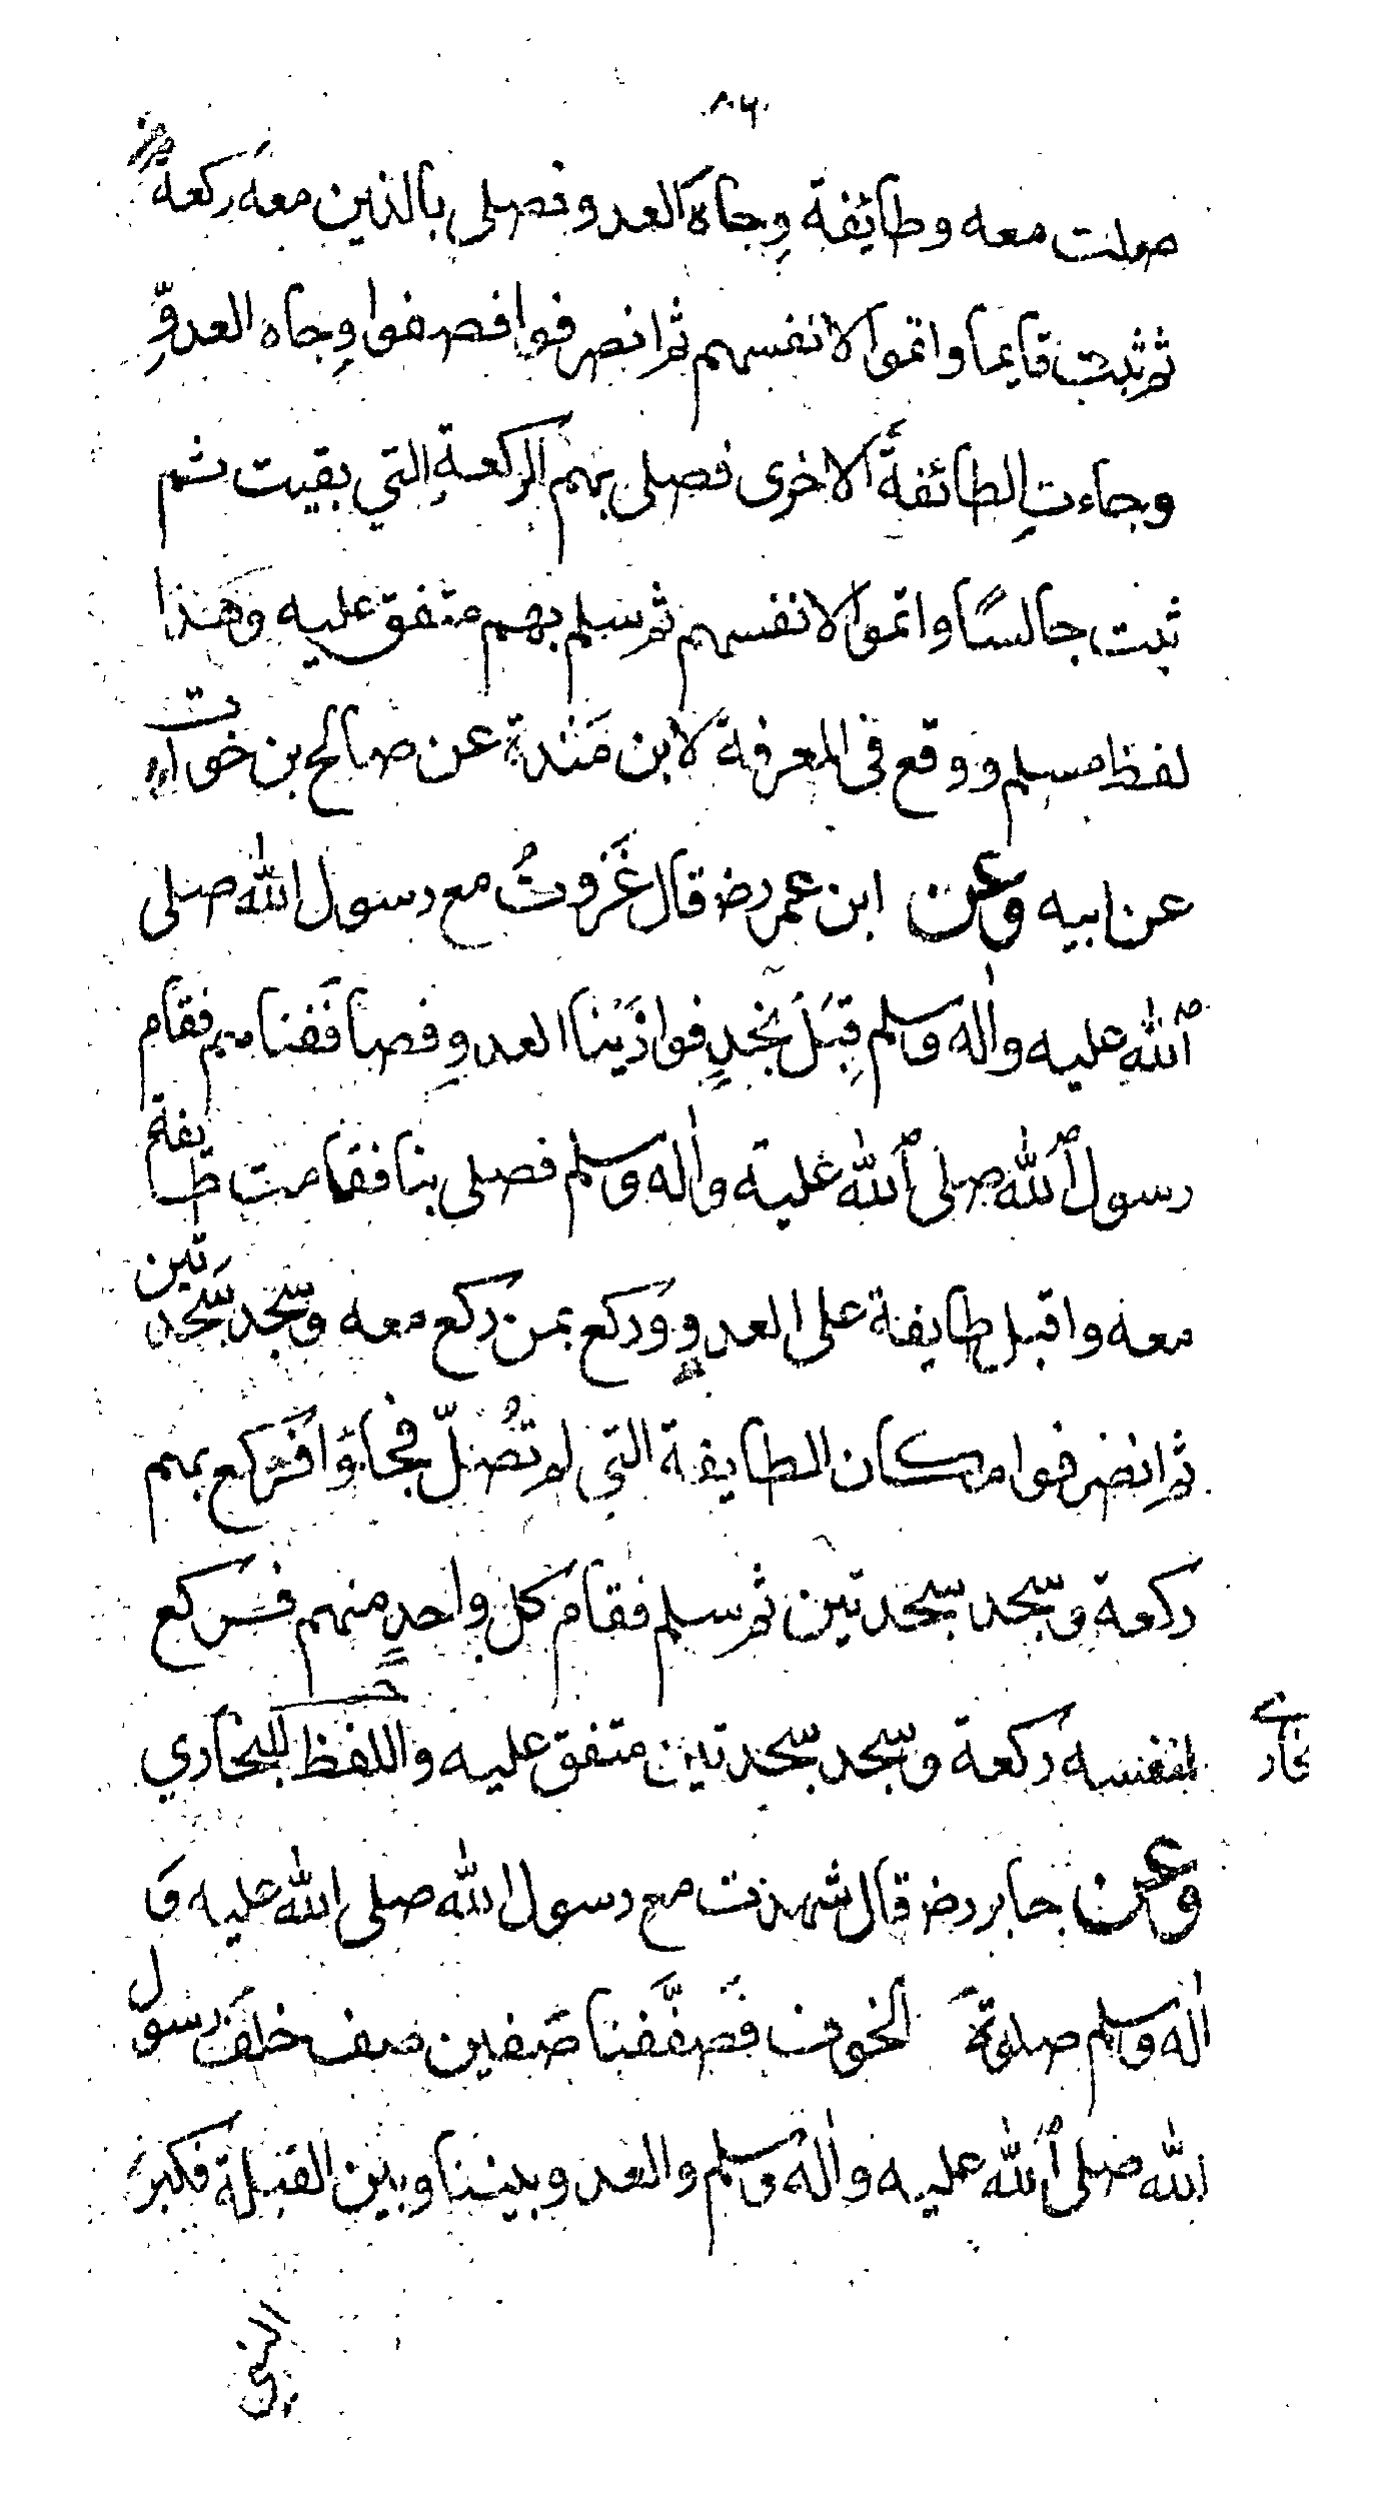 صلت معه وطائفة وِجاه العدو فصلى بالذين معه ركعة
ثم ثبت قايما واتموا لانفسهم ثم انصرفوا فصفوا وِجاه العدوِّ
وجاءتِ الطائفةَ الاخرى فصلى بهم الركعةِ التي بقيت ثم
ثبت جالسًا واتموا لانفسهم ثم سلم بهم متفق عليه وهذا
لفظ مسلم ووقع في المعرفة لابن مَنْدة عن صالح بن خوات
عن ابيه وعن ابن عمر رض قال غَزوتُ مع رسول الله صلى
الله عليه واله وسلم قِبَلَ نجدٍ فوازَيْنا العدوِ فصافَفنا هم فقام
رسول الله صلى الله عليه واله وسلم فصلى بنا فقامت طايفة
معه واقبل طايفة على العدوِ وَركع بمن ركع معه وسَجد سَجدتين
ثم انصرفوا مكان الطايفة التي لم تُصَلّ فجاؤا فركع بهم
ركعة وسجد سجدتين ثم سلم فقام كل واحدٍ منهم فركع
لنفسه ركعة وسجد سجدتين متفق عليه واللفظ للبخاري
وعن جابر رض قال شهدت مع رسول الله صلى الله عليه و
اله وسلم صلوة الخوف فَصَفَّفنا صَفين صف خلفَ رسول
الله صلى الله عليه واله وسلم والعدو بيننا وبين القبلة فكبر